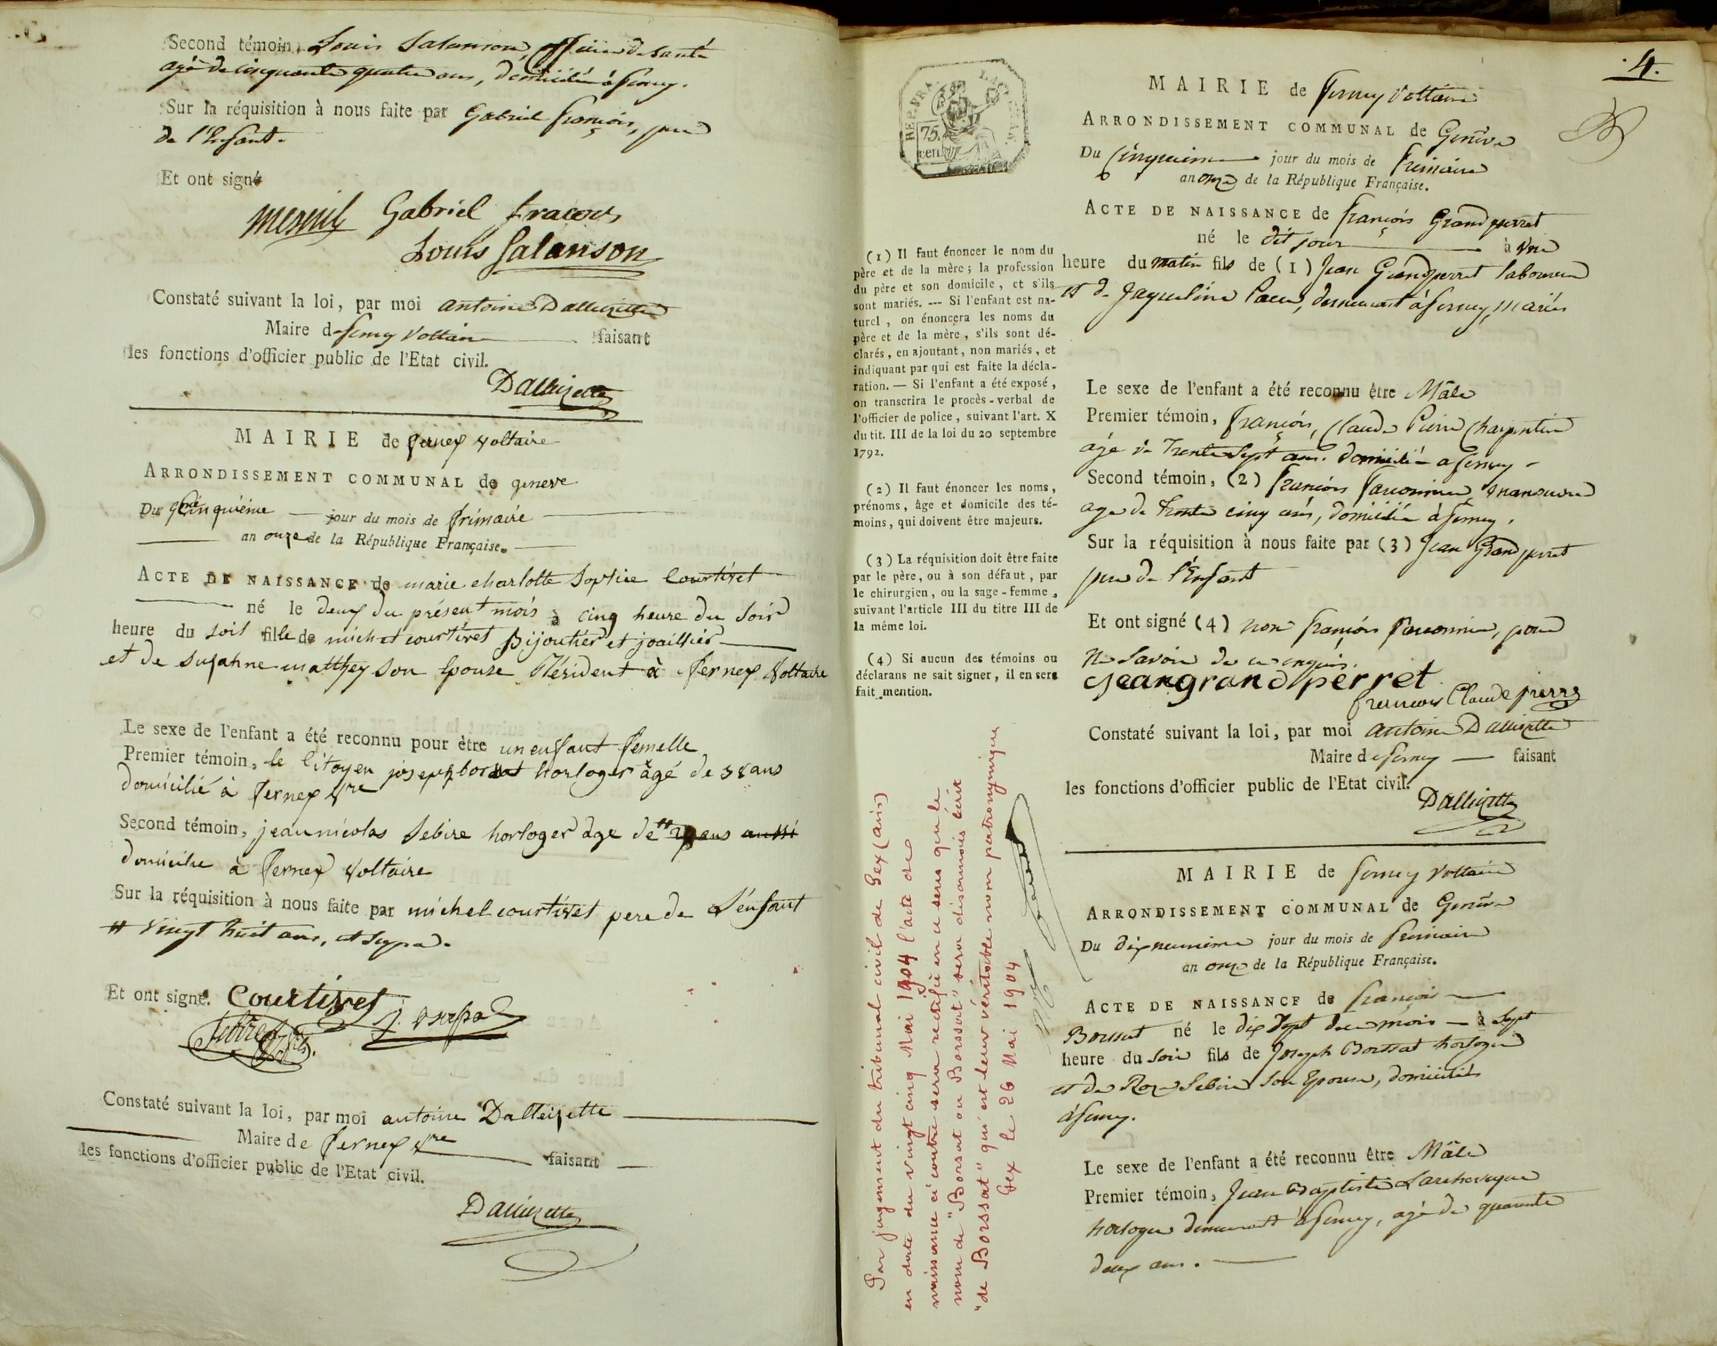 Second témoin, Louis Salanson, officier de santé
agé de cinquante quatre ans, domicilié à ferney.
Sur la réquisition à nous faite par Gabriel françois, pere
de l'Enfant.
Et ont signé
Mesnil Gabriel fracois
Louis Salanson
Constaté suivant la loi, par moi antoine Dallizette
Maire de ferney Voltaire faisant
les fonctions d'officier public de l'Etat civil.
Dallizette
MAIRIE de ferney Voltaire
ARRONDISSEMENT COMMUNAL de geneve
Du Cinquiéme jour du mois de frimaire
an onze de la République Française.
ACTE DE NAISSANCE de marie charlotte Sophie Courtivet
né le deux du présent mois à cinq heure du Soir
heure du soir fille de michel courtivet Bijoutier et joaillier
et de suzanne matthey son Epouse Résident à ferney Voltaire
Le sexe de l'enfant a été reconnu pour être un enfant femelle
Premier témoin, le Citoyen joseph horloger âgé de 38 ans
domicilié à ferney Vre
Second témoin, jean nicolas Sebire horloger âge de # ans aussi
domicilie à ferney Voltaire
Sur la réquisition à nous faite par michel courtivet pere de L'enfant
# Vingt huit ans,
Et ont signé. Courtivet
Constaté suivant la loi, par moi antoine Dallizette
Maire de ferney Vre faisant
les fonctions d'officier public de l'Etat civil.
Dallizette
.4.
REP. FRA.
75
cent
MAIRIE de ferney Voltaire
ARRONDISSEMENT COMMUNAL de Genève
Du Cinquieme jour du mois de frimaire
an onze de la République Française.
ACTE DE NAISSANCE de françois Grandperret
né le dit jour à Une
heure du matin fils de (1) Jean Grandperret laboureur
et de Jaqueline demeurant à ferney, mariés
Le sexe de l'enfant a été reconnu être Mâle
Premier témoin, françois, Claude Pierre Charpentier
agé de Trente Sept ans. domicilié a ferney
Second témoin, (2) françois manoeuvre
age de Trente cinq ans, domicilié à ferney.
Sur la réquisition à nous faite par (3) Jean Grandperret
pere de l'Enfant
Et ont signé (4) non françois pour
ne Savoir de ce enquis.
Jean grand perret
francois Claude pierre
Constaté suivant la loi, par moi antoine Dallizette
Maire de ferney faisant
les fonctions d'officier public de l'Etat civil.
Dallizette
MAIRIE de ferney Voltaire
ARRONDISSEMENT COMMUNAL de Genève
Du dix neuvieme jour du mois de frimaire
an onze de la République Française.
ACTE DE NAISSANCE de francois
Borssat né le dix Sept du mois à Sept
heure du Soir fils de Joseph Borssat horloger
et de Roze Sebire Son Epouse, domiciliés
à ferney.
Le sexe de l'enfant a été reconnu être Mâle
Premier témoin, Jean Baptiste Larcheveque
horloger demeurant à ferney, agé de quarante
deux ans.
(1) Il faut énoncer le nom du
père et de la mère; la profession
du père et son domicile, et s'ils
sont mariés. --- Si l'enfant est na-
turel, on énoncera les noms du
père et de la mère, s'ils sont dé-
clarés, en ajoutant, non mariés, et
indiquant par qui est faite la décla-
ration. — Si l'enfant a été exposé,
on transcrira le procès-verbal de
l'officier de police, suivant l'art. X
du tit. III de la loi du 20 septembre
1792.
(2) Il faut énoncer les noms,
prénoms, âge et domicile des té-
moins, qui doivent être majeurs.
(3) La réquisition doit être faite
par le père, ou à son défaut, par
le chirurgien, ou la sage-femme,
suivant l'article III du titre III de
la même loi.
(4) Si aucun des témoins ou
déclarans ne sait signer, il en sera
fait mention.
Par jugement du tribunal civil de Gex (Ain)
en date du vingt cinq Mai 1904 l'acte de
naissance ci contre sera rectifié en ce sens que le
nom de "Borsat ou Borssat" sera désormais écrit
"de Borssat" qui est leur véritable nom patronymique
Gex le 26 Mai 1904